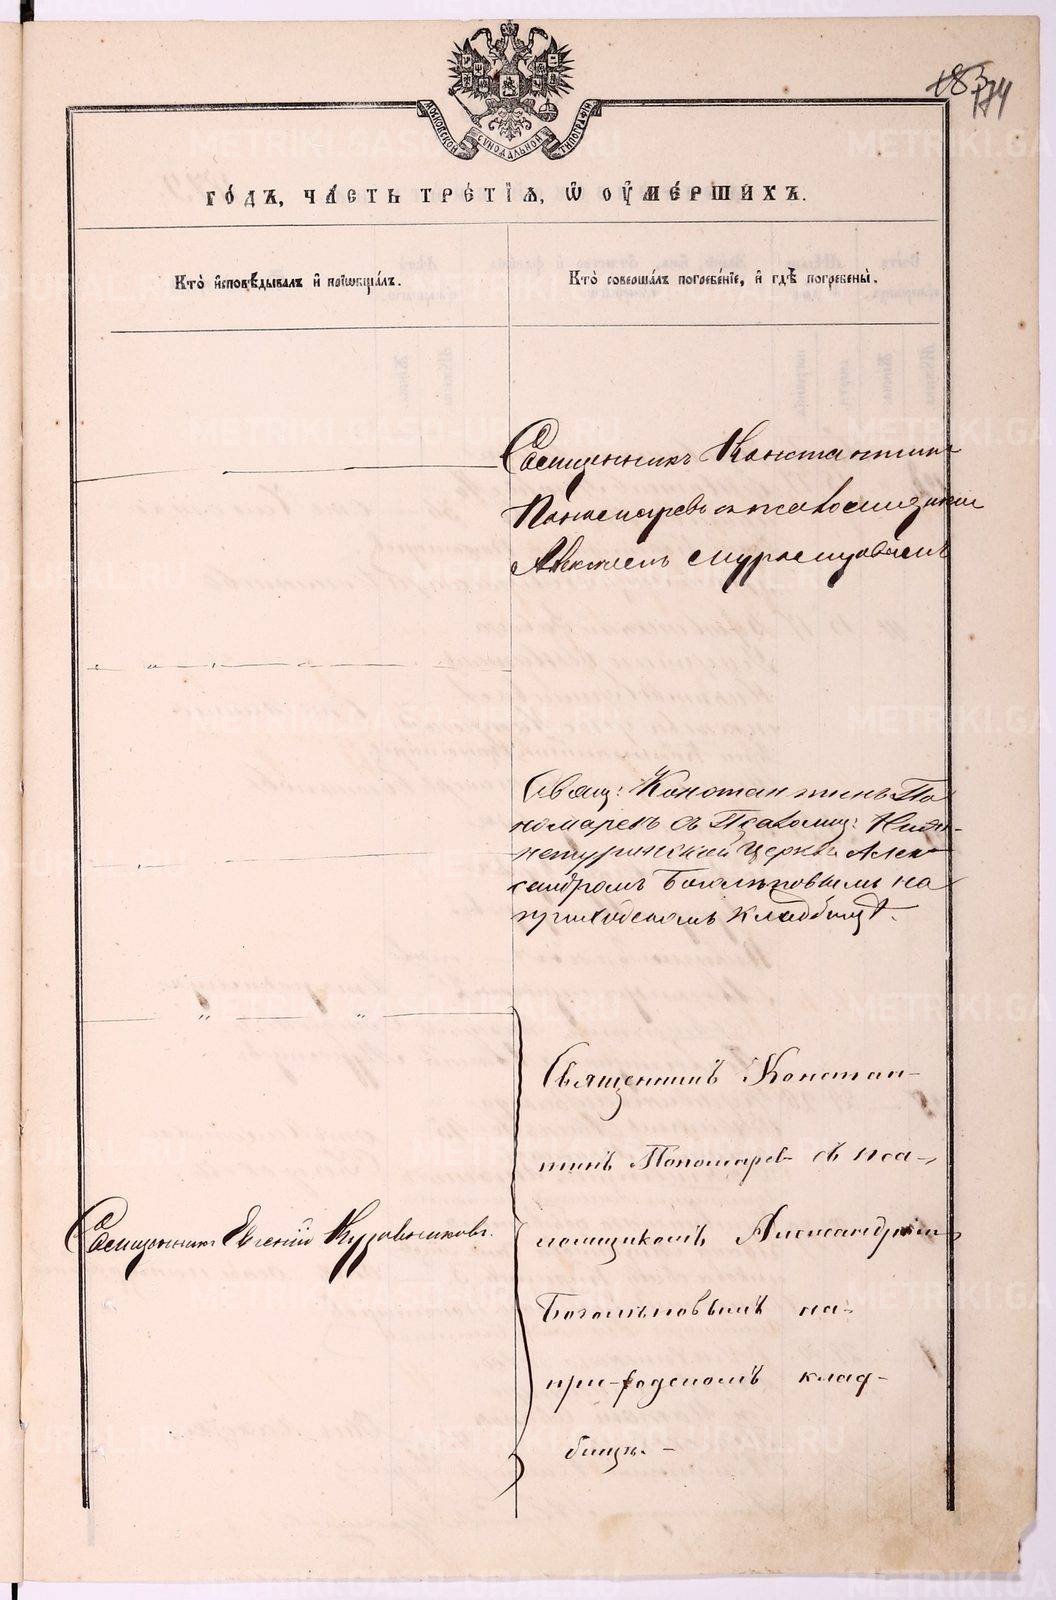 183
174
МОСКОВСКОЙ СѴНОДАЛЬНОЙ ТИПОГРАФІИ
ГО́ДЪ, ЧА́СТЬ ТРЕ́ТІѦ, Ѡ҆ ОУ҆МЕ́РШИХЪ.
Кто̀ и҆сповѣ́дывалъ и҆ прїѡбща́лъ.
Кто̀ соверша́лъ погребе́нїе, и҆ гдѣ̀ погребены̀.
Священникъ Константинъ
Пономаревъ
Священ: Константинъ По
номаревъ съ Псаломщ: Нижне
петуринской церкви Алек
сандромъ Боголѣповымъ на
приходскомъ кладбищѣ.
Священникъ Констан-
тинъ Пономаревъ съ пса-
ломщикомъ Александромъ
Боголѣповымъ на-
при-ходскомъ клад-
бищѣ. -
Священникъ Евгеній Кузовниковъ.
METRIKI.GASO-URAL.RU